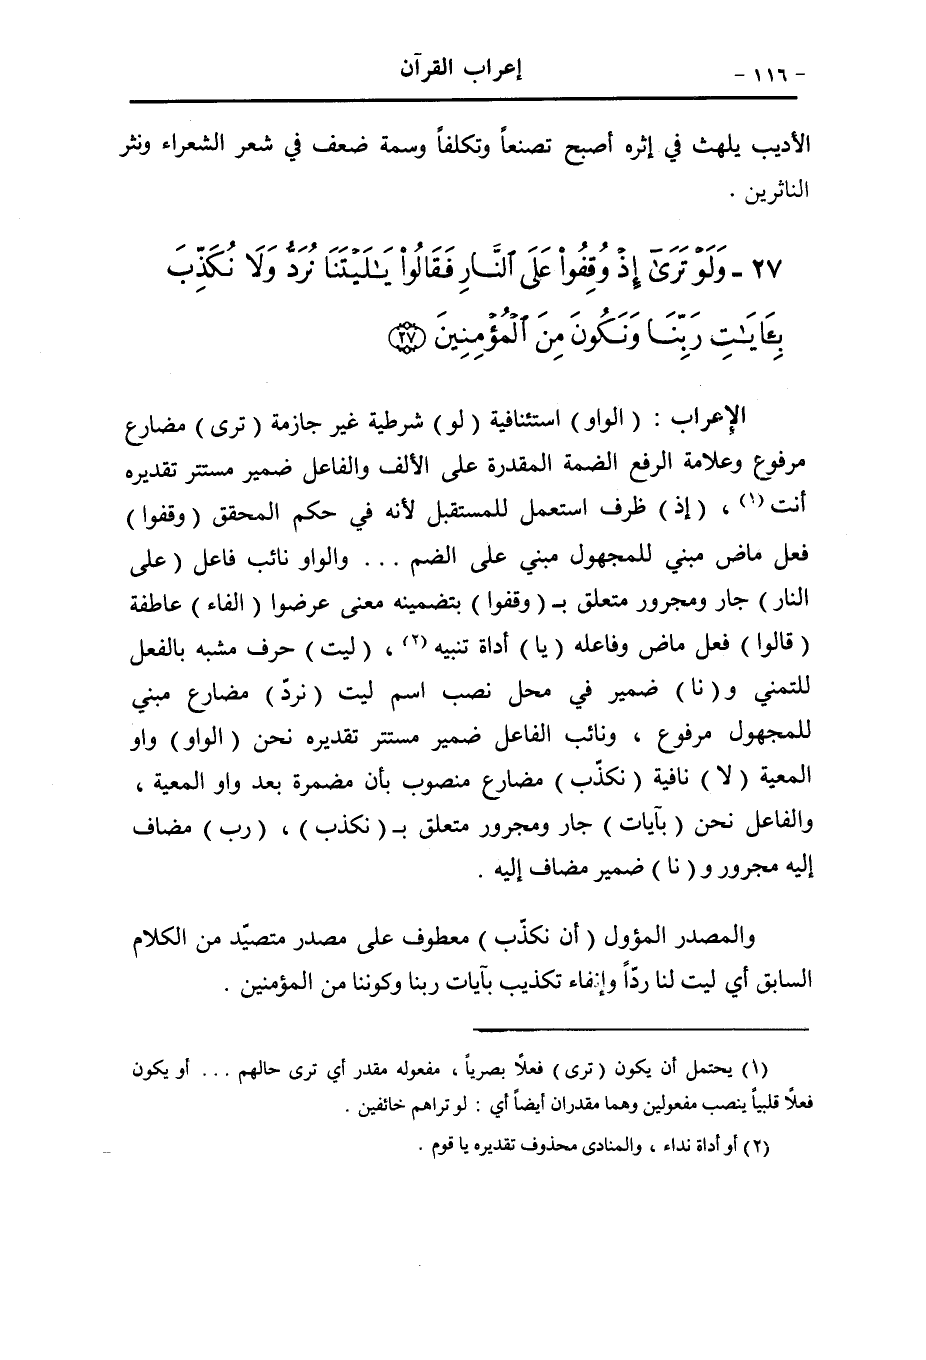 - ١١٦ - إعراب القرآن
الأديب يلهث في إثره أصبح تصنعاً وتكلفاً وسمة ضعف في شعر الشعراء ونثر
الناثرين .
٢٧ - وَلَوْ تَرَىٰٓ إِذْ وُقِفُوا۟ عَلَى ٱلنَّارِ فَقَالُوا۟ يَـٰلَيْتَنَا نُرَدُّ وَلَا نُكَذِّبَ
بِـَٔايَـٰتِ رَبِّنَا وَنَكُونَ مِنَ ٱلْمُؤْمِنِينَ ﴿٢٧﴾
الإعراب : ( الواو ) استئنافية ( لو ) شرطية غير جازمة ( ترى ) مضارع
مرفوع وعلامة الرفع الضمة المقدرة على الألف والفاعل ضمير مستتر تقديره
أنت (١) ، ( إذ ) ظرف استعمل للمستقبل لأنه في حكم المحقق ( وقفوا )
فعل ماض مبني للمجهول مبني على الضم ... والواو نائب فاعل ( على
النار ) جار ومجرور متعلق بـ ( وقفوا ) بتضمينه معنى عرضوا ( الفاء ) عاطفة
( قالوا ) فعل ماض وفاعله ( يا ) أداة تنبيه (٢) ، ( ليت ) حرف مشبه بالفعل
للتمني و ( نا ) ضمير في محل نصب اسم ليت ( نردّ ) مضارع مبني
للمجهول مرفوع ، ونائب الفاعل ضمير مستتر تقديره نحن ( الواو ) واو
المعية ( لا ) نافية ( نكذّب ) مضارع منصوب بأن مضمرة بعد واو المعية ،
والفاعل نحن ( بآيات ) جار ومجرور متعلق بـ ( نكذب ) ، ( رب ) مضاف
إليه مجرور و ( نا ) ضمير مضاف إليه .
والمصدر المؤول ( أن نكذّب ) معطوف على مصدر متصيّد من الكلام
السابق أي ليت لنا ردّاً وانتفاء تكذيب بآيات ربنا وكوننا من المؤمنين .
(١) يحتمل أن يكون ( ترى ) فعلًا بصرياً ، مفعوله مقدر أي ترى حالهم ... أو يكون
فعلًا قلبياً ينصب مفعولين وهما مقدران أيضاً أي : لو تراهم خائفين .
(٢) أو أداة نداء ، والمنادى محذوف تقديره يا قوم .